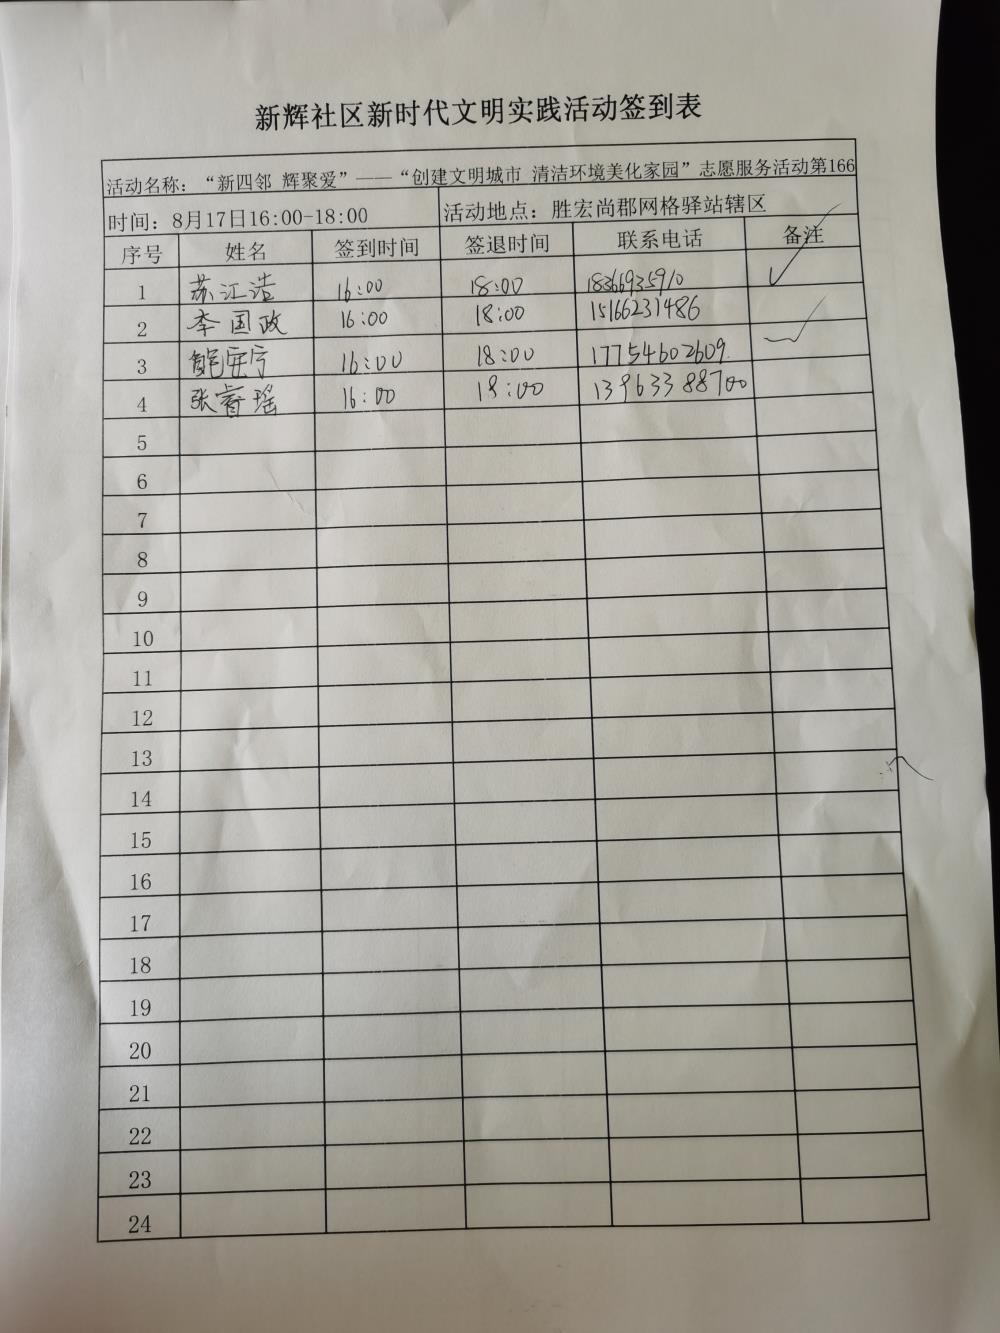 新辉社区新时代文明实践活动签到表
活动名称：“新四邻 辉聚爱”——“创建文明城市 清洁环境美化家园”志愿服务活动第166
时间：8月17日16:00-18:00 活动地点：胜宏尚郡网格驿站辖区
序号 姓名 签到时间 签退时间 联系电话 备注
1 苏江浩 16:00 18:00 18366935910 ✓
2 李国政 16:00 18:00 15166231486
3 鲍安宁 16:00 18:00 17754602609 ✓
4 张睿瑶 16:00 18:00 13963388700
5
6
7
8
9
10
11
12
13
14
15
16
17
18
19
20
21
22
23
24